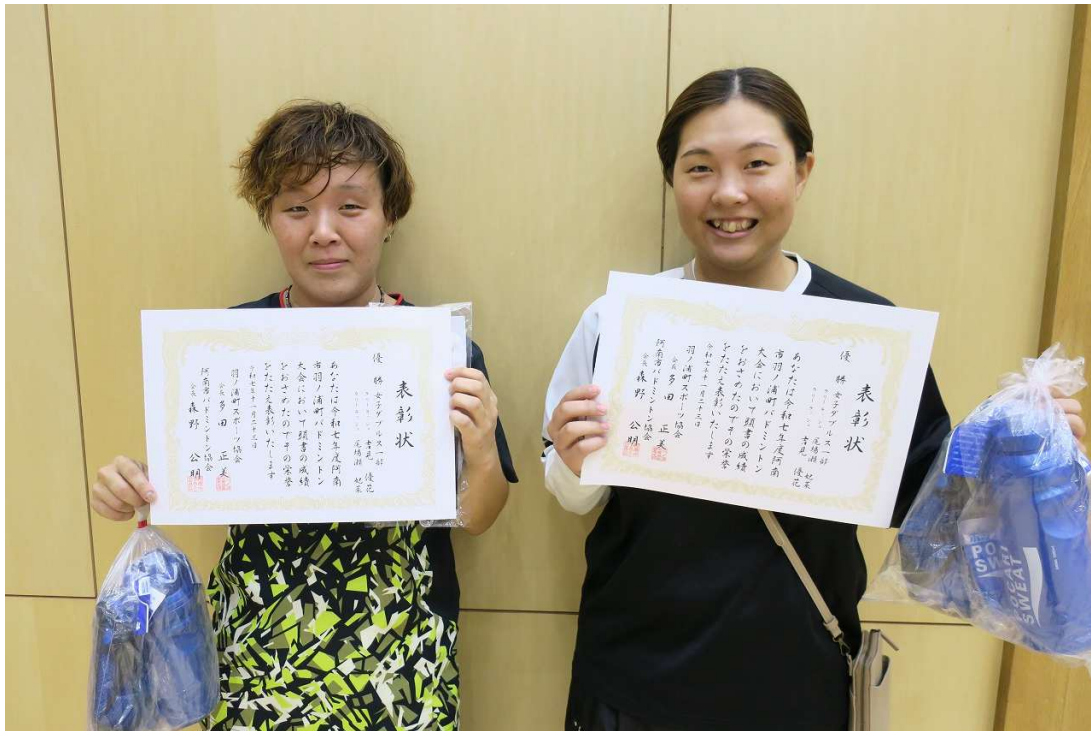 表彰状
優勝 女子ダブルス一部
吉見 優花
尾場瀬 妃菜
あなたは令和七年度阿南
市羽ノ浦町バドミントン
大会において頭書の成績
をおさめたのでその栄誉
をたたえ表彰いたします
令和七年十一月二十三日
羽ノ浦町スポーツ協会
会長 多田 正美
阿南市バドミントン協会
会長 森野 公明
表彰状
優勝 女子ダブルス一部
尾場瀬 妃菜
吉見 優花
あなたは令和七年度阿南
市羽ノ浦町バドミントン
大会において頭書の成績
をおさめたのでその栄誉
をたたえ表彰いたします
令和七年十一月二十三日
羽ノ浦町スポーツ協会
会長 多田 正美
阿南市バドミントン協会
会長 森野 公明
SWEAT